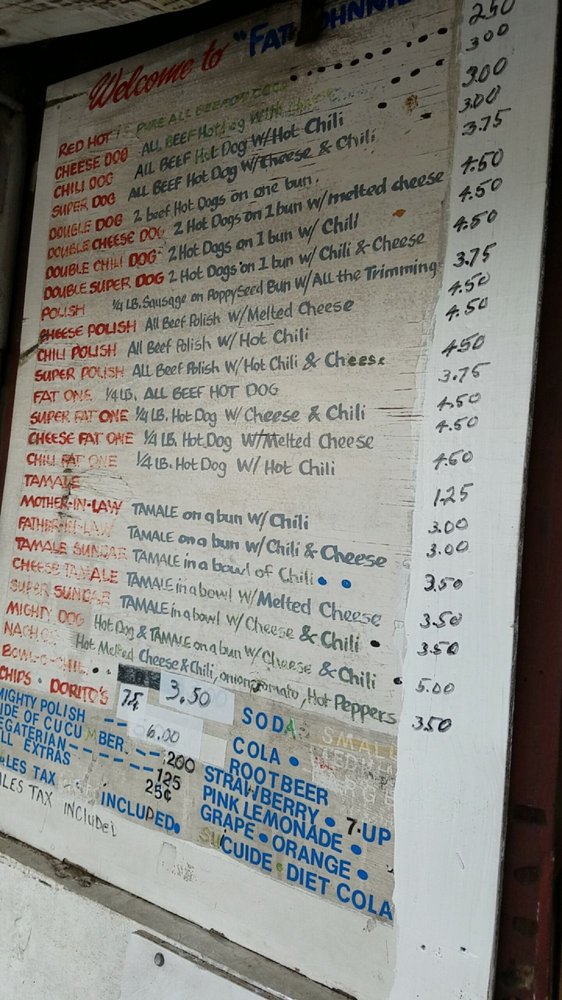 Welcome to "FAT JOHNNIE
RED HOT PURE ALL BEEF HOT DOG 2.50
CHEESE DOG ALL BEEF HOT dog W/ Cheese 3.00
CHILI DOG ALL BEEF Hot Dog W/Hot Chili 3.00
SUPER DOG ALL BEEF Hot Dog W/Cheese & Chili 3.00
DOUBLE DOG 2 beef Hot Dogs on one bun. 3.75
DOUBLE CHEESE DOG 2 Hot Dogs on 1 bun w/melted cheese 4.50
DOUBLE CHILI DOG 2 Hot Dogs on 1 bun w/ Chili 4.50
DOUBLE SUPER DOG 2 Hot Dogs on 1 bun w/ Chili & Cheese 4.50
POLISH 1/4 LB. Squsage on Poppyseed Bun W/All the Trimming 3.75
CHEESE POLISH All Beef Polish W/Melted Cheese 4.50
CHILI POLISH All Beef Polish W/ Hot Chili 4.50
SUPER POLISH All Beef Polish W/Hot Chili & Cheese 4.50
FAT ONE 1/4 LB. ALL BEEF HOT DOG 3.75
SUPER FAT ONE 1/4 LB. Hot Dog W/ Cheese & Chili 4.50
CHEESE FAT ONE 1/4 LB. Hot Dog W/Melted Cheese 4.50
CHILI FAT ONE 1/4 LB. Hot Dog W/ Hot Chili 4.50
TAMALE 1.25
MOTHER-IN-LAW TAMALE on a bun W/ Chili 3.00
FATHER-IN-LAW TAMALE on a bun W/ Chili & Cheese 3.00
TAMALE SUNDAE TAMALE in a bowl of Chili 3.50
CHEESE TAMALE TAMALE in a bowl W/ Melted Cheese 3.50
SUPER SUNDAE TAMALE in a bowl W/ Cheese & Chili 3.50
MIGHTY DOG Hot Dog & TAMALE on a bun W/ Cheese & Chili 5.00
NACHOS Hot Melted Cheese & Chili, onion, Tomato, Hot Peppers 3.50
BOWL-O-CHIL 3.50
CHIPS • DORITO'S 75¢
MIGHTY POLISH 6.00
IDE OF CUCUMBER 200
EGATERIAN 125
LL EXTRAS 25¢
LES TAX INCLUDED.
LES TAX INCLUDED
SODA SMALL
COLA •
ROOT BEER
STRAWBERRY • 7-UP
PINK LEMONADE •
GRAPE • ORANGE •
SUICUIDE • DIET COLA